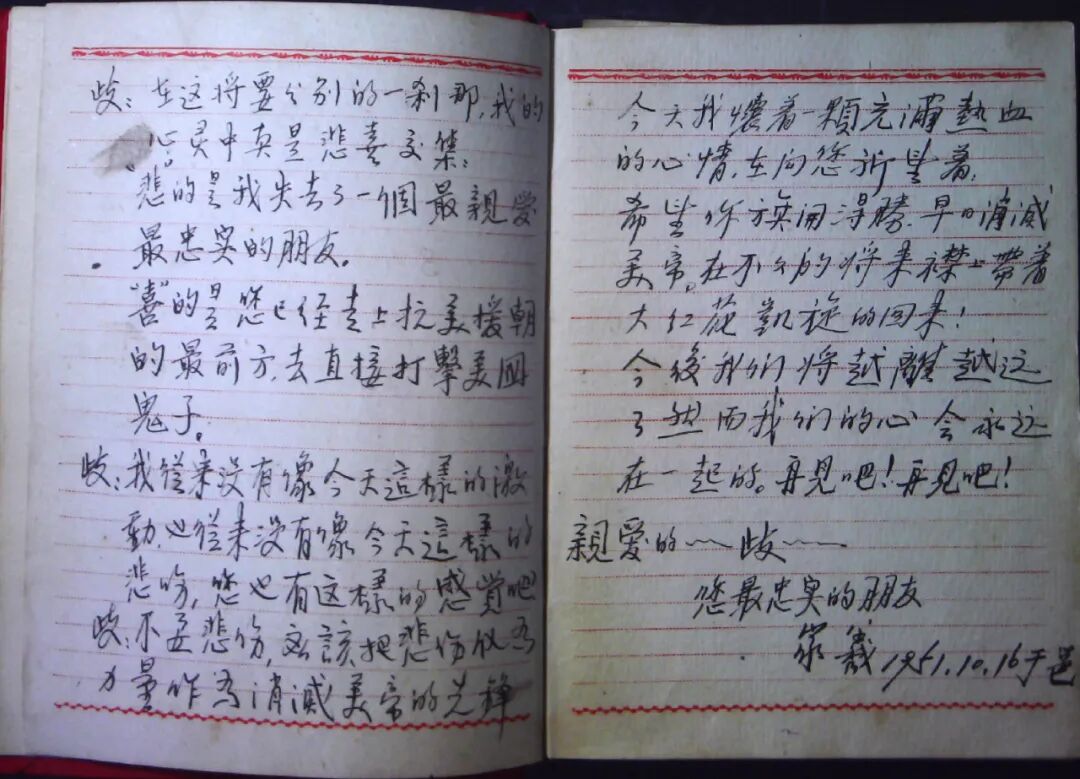 歧：在这将要分别的一刹那，我的
心灵中真是悲喜交集：
悲的是我失去了一個最親爱
最忠实的朋友。
"喜"的是您已经走上抗美援朝
的最前方，去直接打擊美國
鬼子。
歧：我從来没有像今天這樣的激
動，也從来没有像今天這樣的
悲伤，您也有这樣的感覚吧！
歧：不要悲伤，应該把悲伤化為
力量作為消滅美帝的先鋒
今天我懷着一顆充滿熱血
的心情，在向您祈望着，
希望你旗開得勝，早日消滅
美帝。在不久的将来襟上帶着
大红花凱旋的回来！
今後我们将越離越远
了然而我们的心会永远
在一起的。再見吧！再見吧！
親爱的~~歧~~
您最忠实的朋友
家義 1951.10.16于邕